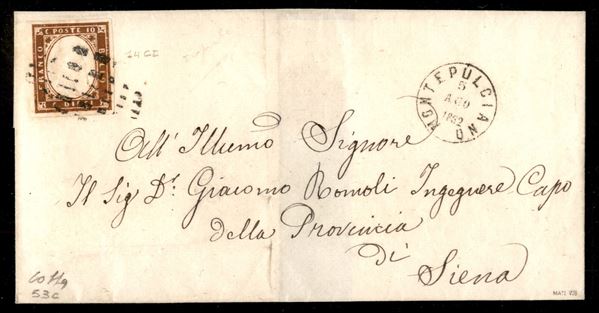 C. POSTE 10
FRANCO
14CE
MONTEPULCIANO
5
AGO
1862
All' Illumo Signore
Il Sig Dr. Giacomo Romoli Ingegnere Capo
della Provincia
di
Siena
53c